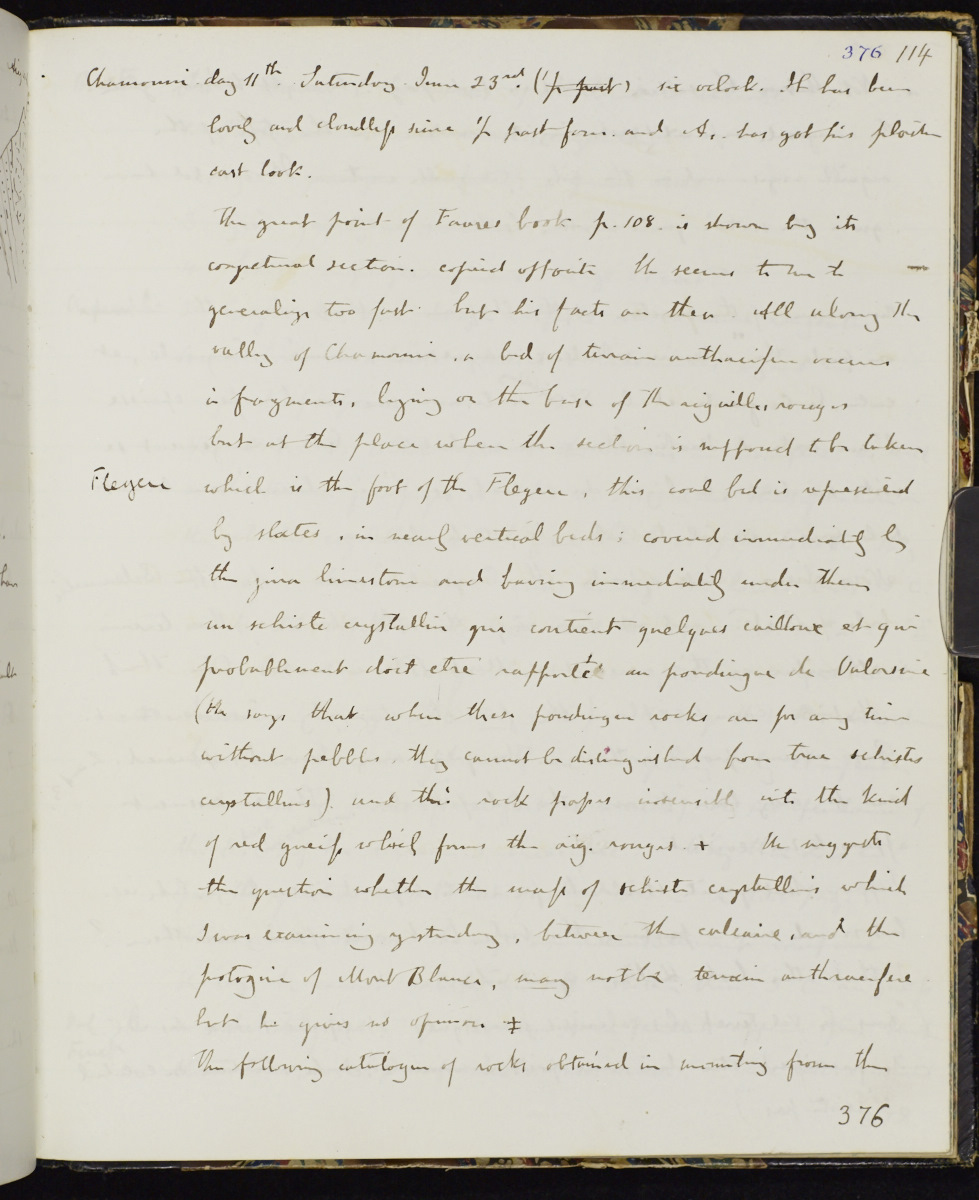 376 114
Chamouni. day 11th. Saturday June 23rd. (½ past) six oclock. It has been
lovely and cloudless since ½ past four. and A. has got his
cast look.
The great point of Favres book p. 108. is shown by its
conjectural section. copied opposite He seems to me to
generalize too fast. but his facts are these All along the
valley of Chamouni. a bed of terrain anthracifere occurs
in fragments, lying on the base of the aiguilles rouges
but at the place where the section is supposed to be taken
Flegere which is the foot of the Flegere, this coal bed is represented
by slates, in nearly vertical beds; covered immediately by
the jura limestone and having immediately under them
un schiste crystallin qui contient quelques cailloux et qui
probablement doit etre rapporté au poudingue de Valorsine
(He says that when these poudingue rocks are for any time
without pebbles, they cannot be distinguished from true schistes
crystallins). and this rock passes insensibly into the kind
of red gneiss which forms the aig. rouges + He suggests
the question whether the mass of schiste crystallins which
I was examining yesterday, between the calcaire, and the
protogine of Mont Blanc, may not be terrain anthracifere
but he gives no opinion ‡
The following catalogue of rocks obtained in mounting from the
376